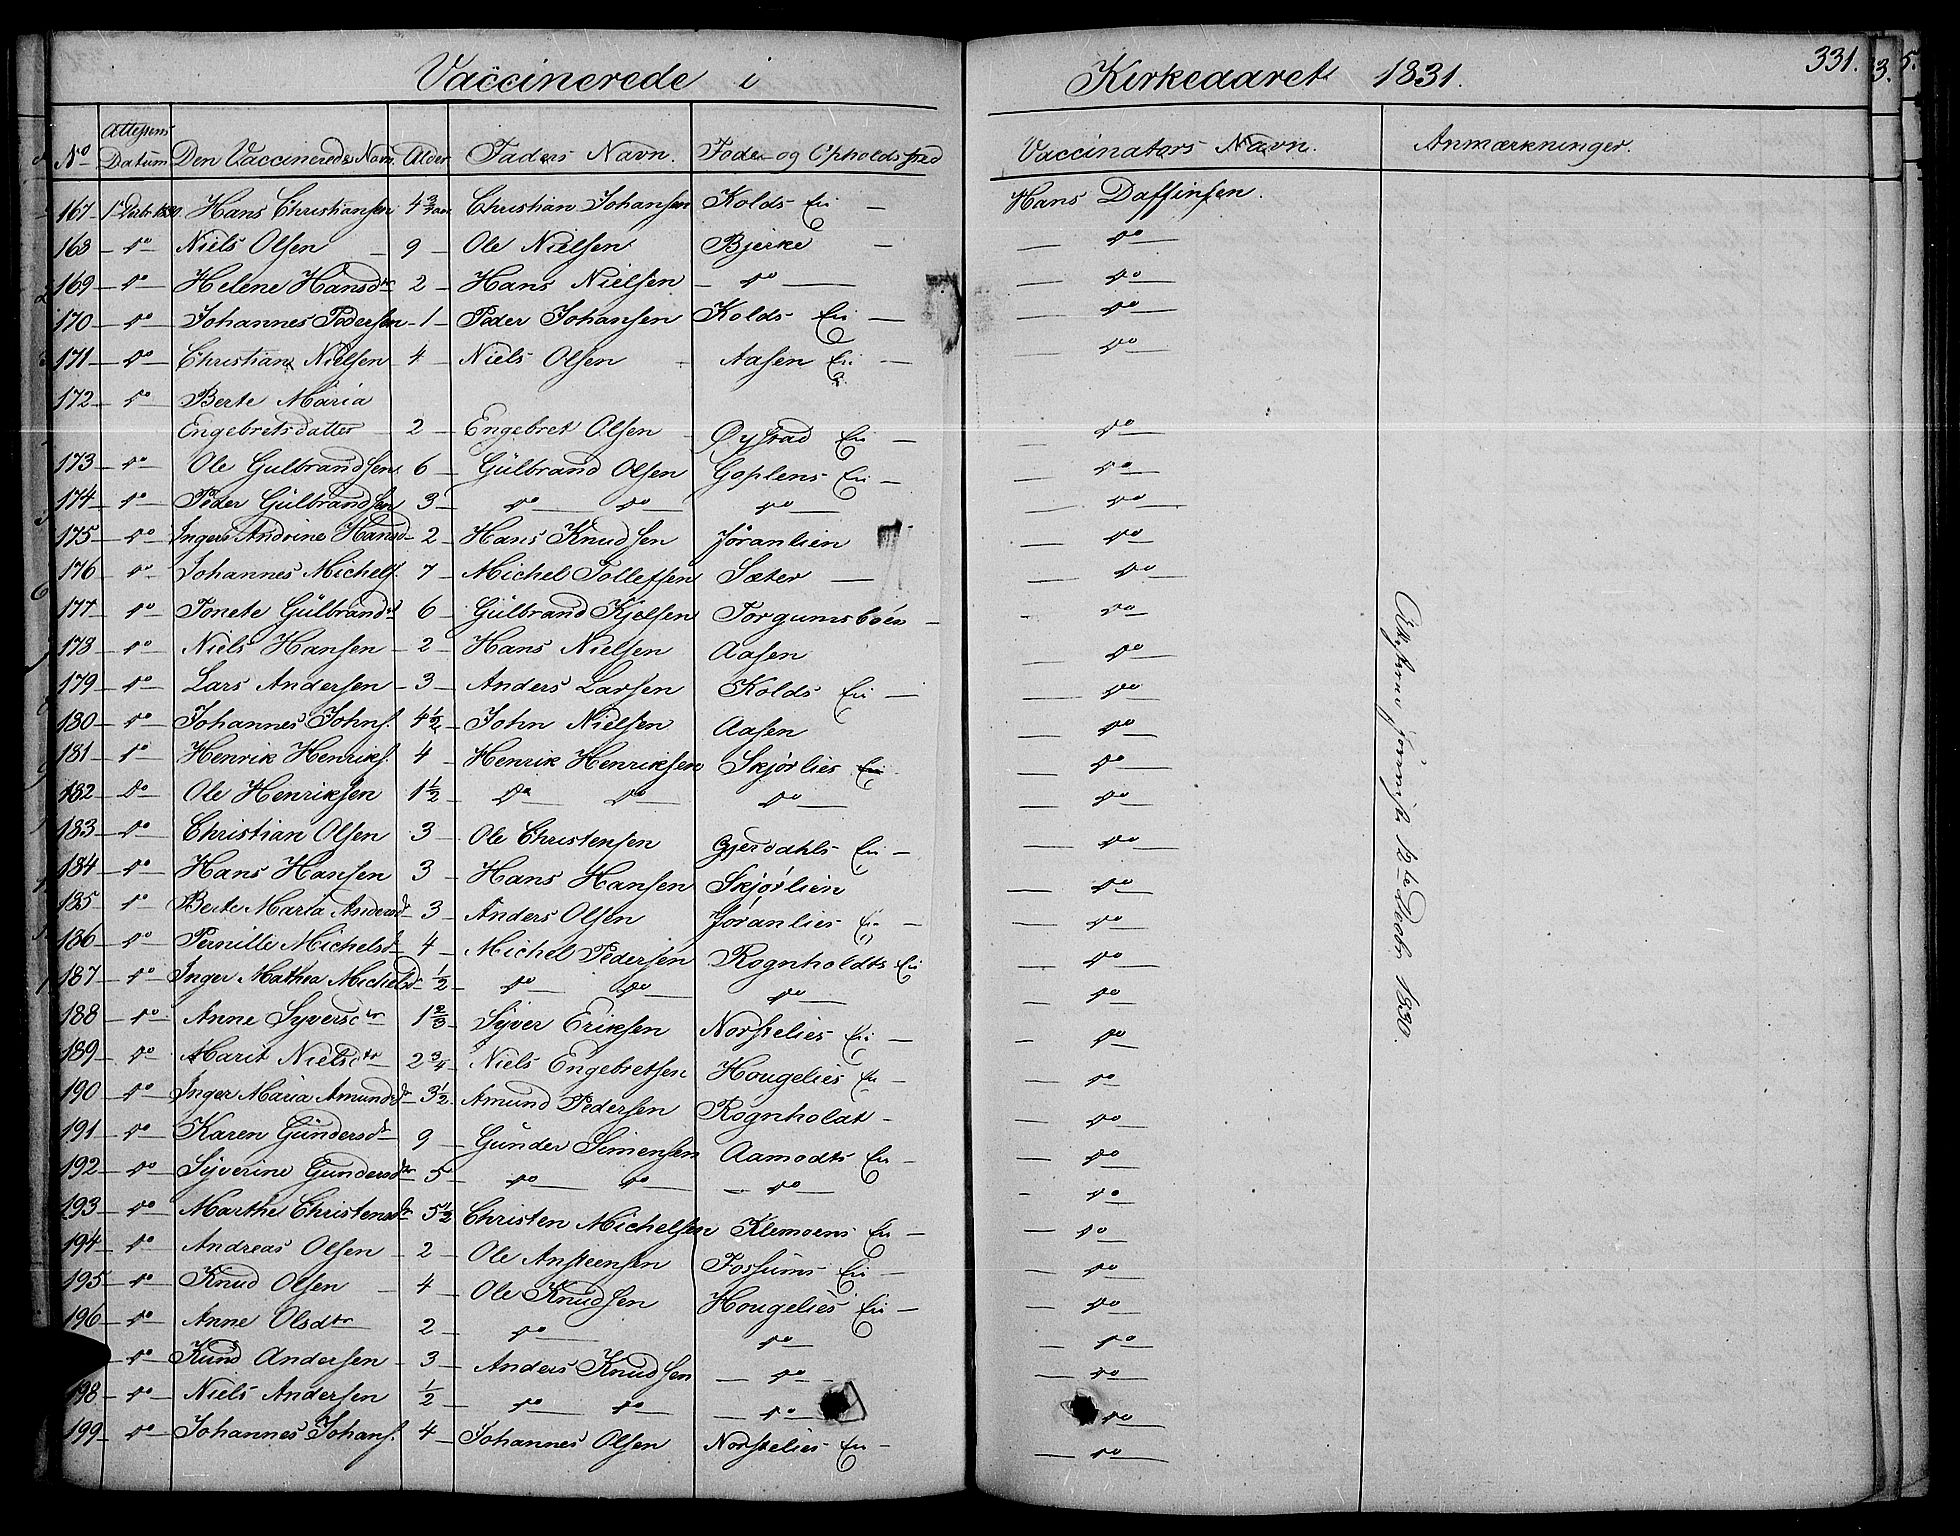 Vaccinerede i Kirkeaaret 1831. 331.
No Attestens Datum Den Vaccineredes Navn Alder Faders Navn. Føde- og Opholdssted Vaccinators Navn. Anmærkninger.
167 1ste Decbr 1830. Hans Christiansen 4 3/4 aar Christian Johansen Kolds Eie Hans Daffinsen.
168 do Niels Olsen 9 Ole Nielsen Bjerke do
169 do Helene Hansdr 2 Hans Nielsen do do
170 do Johannes Pedersen 1 Peder Johansen Kolds Eie do
171 do Christian Nielsen 4 Niels Olsen Aasen Eie do
172 do Berte Maria
Engebretsdatter 2 Engebret Olsen Øystad Eie do
173 do Ole Gulbrandsen 6 Gulbrand Olsen Goplens Eie do
174 do Peder Gulbrandsen 3 do do do do
175 do Inger Andrine Hansd 2 Hans Knudsen Jøranlien do
176 do Johannes Michels. 7 Michel Tollefsen Sæter do
177 do Tonete Gulbrandd 6 Gulbrand Kjelsen Torgumsbøen do
178 do Niels Hansen 2 Hans Nielsen Aasen do
179 do Lars Andersen 3 Anders Larsen Kolds Eie do
180 do Johannes Johns. 4 1/2 John Nielsen Aasen do
181 do Henrik Henriks. 4 Henrik Henriksen Skjørlies Eie do
182 do Ole Henriksen 1 1/2 do do do do
183 do Christian Olsen 3 Ole Christensen Gjerdahls Eie do
184 do Hans Hansen 3 Hans Hansen Skjørlien do
185 do Berte Maria Andersd 3 Anders Olsen Jøranlies Eie do
186 do Pernille Michelsd 4 Michel Pedersen Rognholdts Eie do
187 do Inger Mathea Michelsd 1/2 do do do do
188 do Anne Syversdtr 1 2/3 Syver Eriksen Norstelies Eie do
189 do Marit Nielsdtr 2 3/4 Niels Engebretsen Hougelies Eie do
190 do Inger Maria Amundsd 3 1/2 Amund Pedersen Rognholdt do
191 do Karen Gundersd 9 Gunder Simensen Aamodts Eie do
192 do Syverine Gundersdtr 5 do do do do
193 do Marthe Christensdr 5 1/2 Christen Michelsen Klemoens Eie do
194 do Andreas Olsen 2 Ole Ansteensen Fossums Eie do
195 do Knud Olsen 4 Ole Knudsen Hougelies Eie do
196 do Anne Olsdtr 2 do do do
do Knud Andersen 3 Anders Knudsen do do
198 do Niels Andersen 1/2 do do do do
199 do Johannes Johans. 4 Johannes Olsen Norstelies Eie do
Decbr 1830.